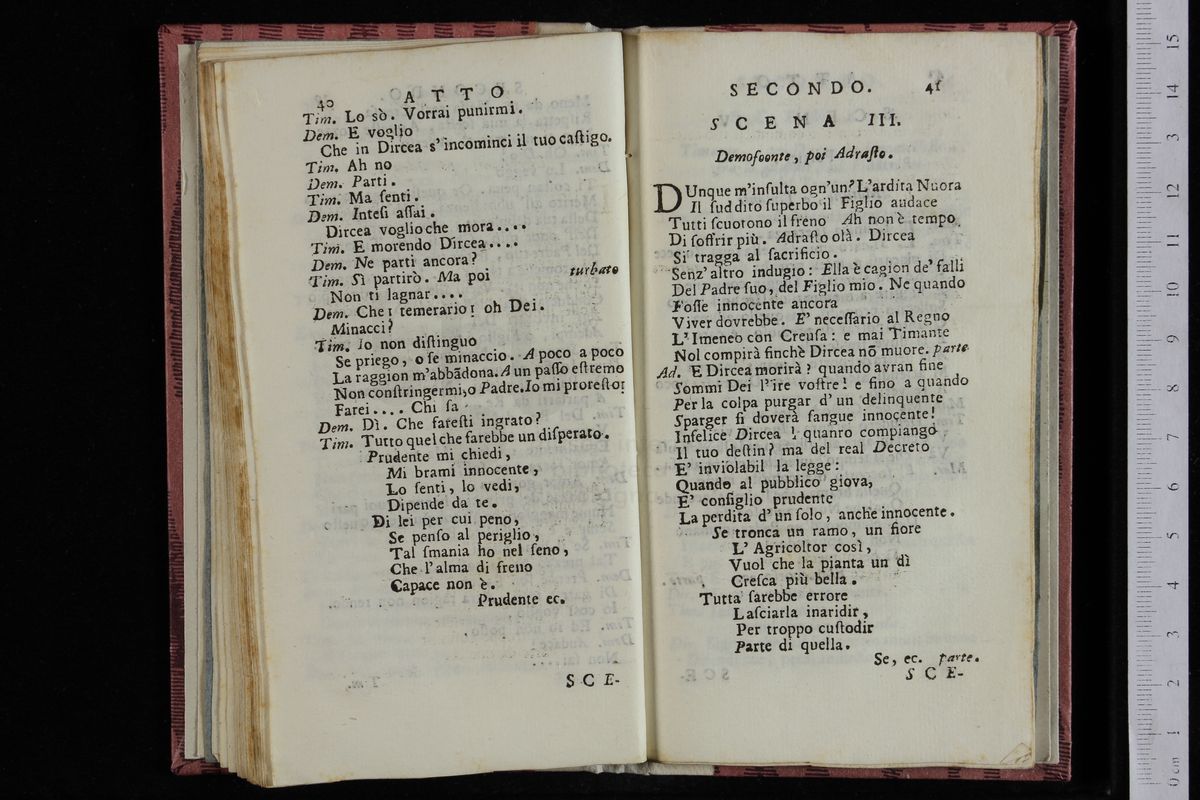 40 ATTO
Tim. Lo sò. Vorrai punirmi.
Dem. E voglio
Che in Dircea s'incominci il tuo caſtigo.
Tim. Ah no
Dem. Parti.
Tim. Ma ſenti.
Dem. Inteſi aſſai.
Dircea voglio che mora....
Tim. E morendo Dircea....
Dem. Ne parti ancora?
Tim. Sì partirò. Ma poi turbato
Non ti lagnar....
Dem. Che! temerario! oh Dei.
Minacci?
Tim. Io non diſtinguo
Se priego, o ſe minaccio. A poco a poco
La raggion m'abbãdona. A un paſſo eſtremo
Non conſtringermi, o Padre. Io mi proreſto!
Farei.... Chi ſa
Dem. Dì. Che fareſti ingrato?
Tim. Tutto quel che farebbe un diſperato.
Prudente mi chiedi,
Mi brami innocente,
Lo ſenti, lo vedi,
Dipende da te.
Di lei per cui peno,
Se penſo al periglio,
Tal ſmania ho nel ſeno,
Che l'alma di freno
Capace non è.
Prudente ec.
SCE-
SECONDO. 41
SCENA III.
Demofoonte, poi Adraſto.
DUnque m'inſulta ogn'un? L'ardita Nuora
Il ſuddito ſuperbo il Figlio audace
Tutti ſcuotono il freno Ah non è tempo
Di ſoffrir più. Adraſto olà. Dircea
Si tragga al ſacrificio.
Senz'altro indugio: Ella è cagion de' falli
Del Padre ſuo, del Figlio mio. Ne quando
Foſſe innocente ancora
Viver dovrebbe. E' neceſſario al Regno
L'Imeneo con Creuſa: e mai Timante
Nol compirà finchè Dircea nõ muore. parte
Ad. E Dircea morirà? quando avran fine
Sommi Dei l'ire voſtre! e fino a quando
Per la colpa purgar d'un delinquente
Sparger ſi doverà ſangue innocente!
Infelice Dircea! quanro compiango
Il tuo deſtin? ma del real Decreto
E' inviolabil la legge:
Quando al pubblico giova,
E' conſiglio prudente
La perdita d'un ſolo, anche innocente.
Se tronca un ramo, un fiore
L'Agricoltor così,
Vuol che la pianta un dì
Creſca più bella.
Tutta ſarebbe errore
Laſciarla inaridir,
Per troppo cuſtodir
Parte di quella.
Se, ec. parte.
SCE-
0 cm 1 2 3 4 5 6 7 8 9 10 11 12 13 14 15